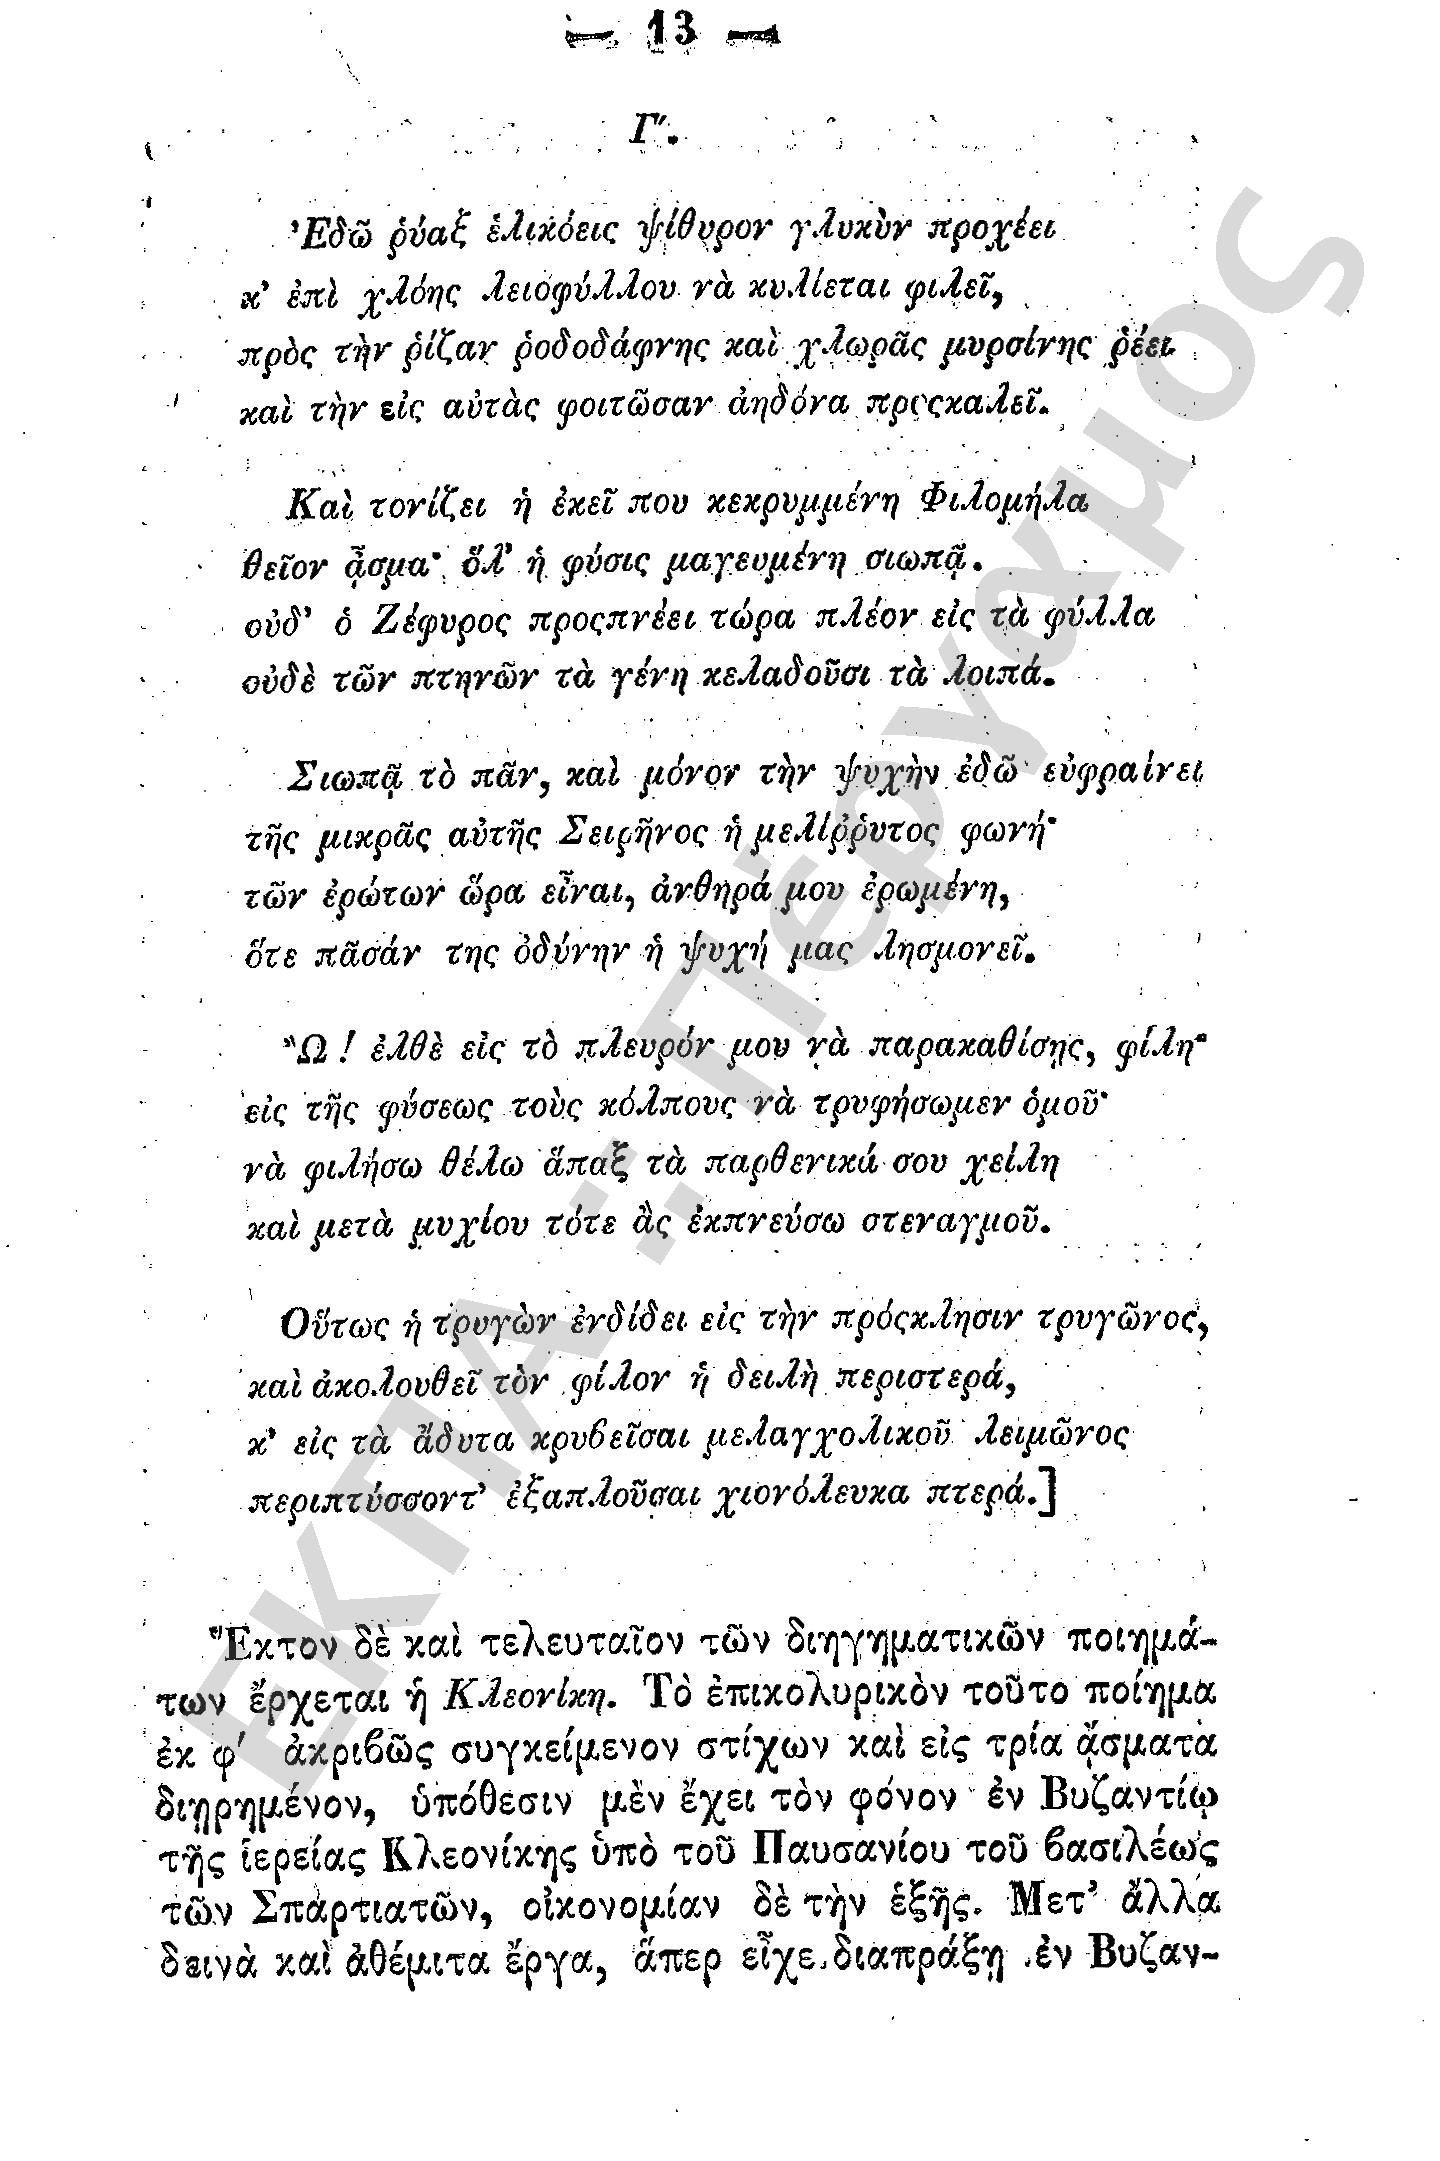 — 13 —
Γ'.
Ἐδῶ ῥύαξ ἑλικόεις ψίθυρον γλυκὺν προχέει
κ' ἐπὶ χλόης λειοφύλλου νὰ κυλίεται φιλεῖ,
πρὸς τὴν ῥίζαν ῥοδοδάφνης καὶ χλωρᾶς μυρσίνης ῥέει
καὶ τὴν εἰς αὐτὰς φοιτῶσαν ἀηδόνα προςκαλεῖ.
Καὶ τονίζει ἡ ἐκεῖ που κεκρυμμένη Φιλομήλα
θεῖον ᾆσμα· ὅλ' ἡ φύσις μαγευμένη σιωπᾷ.
οὐδ' ὁ Ζέφυρος προςπνέει τώρα πλέον εἰς τὰ φύλλα
οὐδὲ τῶν πτηνῶν τὰ γένη κελαδοῦσι τὰ λοιπά.
Σιωπᾷ τὸ πᾶν, καὶ μόνον τὴν ψυχὴν ἐδῶ εὐφραίνει
τῆς μικρᾶς αὐτῆς Σειρῆνος ἡ μελίῤῥυτος φωνή·
τῶν ἐρώτων ὥρα εἶναι, ἀνθηρά μου ἐρωμένη,
ὅτε πᾶσάν της ὀδύνην ἡ ψυχή μας λησμονεῖ.
Ὢ ! ἐλθὲ εἰς τὸ πλευρόν μου νὰ παρακαθίσῃς, φίλη·
εἰς τῆς φύσεως τοὺς κόλπους νὰ τρυφήσωμεν ὁμοῦ·
νὰ φιλήσω θέλω ἅπαξ τὰ παρθενικά σου χείλη
καὶ μετὰ μυχίου τότε ἂς ἐκπνεύσω στεναγμοῦ.
Οὕτως ἡ τρυγὼν ἐνδίδει εἰς τὴν πρόςκλησιν τρυγῶνος,
καὶ ἀκολουθεῖ τὸν φίλον ἡ δειλὴ περιστερά,
κ' εἰς τὰ ἄδυτα κρυβεῖσαι μελαγχολικοῦ λειμῶνος
περιπτύσσοντ' ἐξαπλοῦσαι χιονόλευκα πτερά.]
Ἕκτον δὲ καὶ τελευταῖον τῶν διηγηματικῶν ποιημά-
των ἔρχεται ἡ Κλεονίκη. Τὸ ἐπικολυρικὸν τοῦτο ποίημα
ἐκ φ' ἀκριβῶς συγκείμενον στίχων καὶ εἰς τρία ᾄσματα
διῃρημένον, ὑπόθεσιν μὲν ἔχει τὸν φόνον ἐν Βυζαντίῳ
τῆς ἱερείας Κλεονίκης ὑπὸ τοῦ Παυσανίου τοῦ βασιλέως
τῶν Σπαρτιατῶν, οἰκονομίαν δὲ τὴν ἑξῆς. Μετ' ἄλλα
δεινὰ καὶ ἀθέμιτα ἔργα, ἅπερ εἶχε διαπράξῃ ἐν Βυζαν-
ΕΚΠΑ :: Πέργαμος